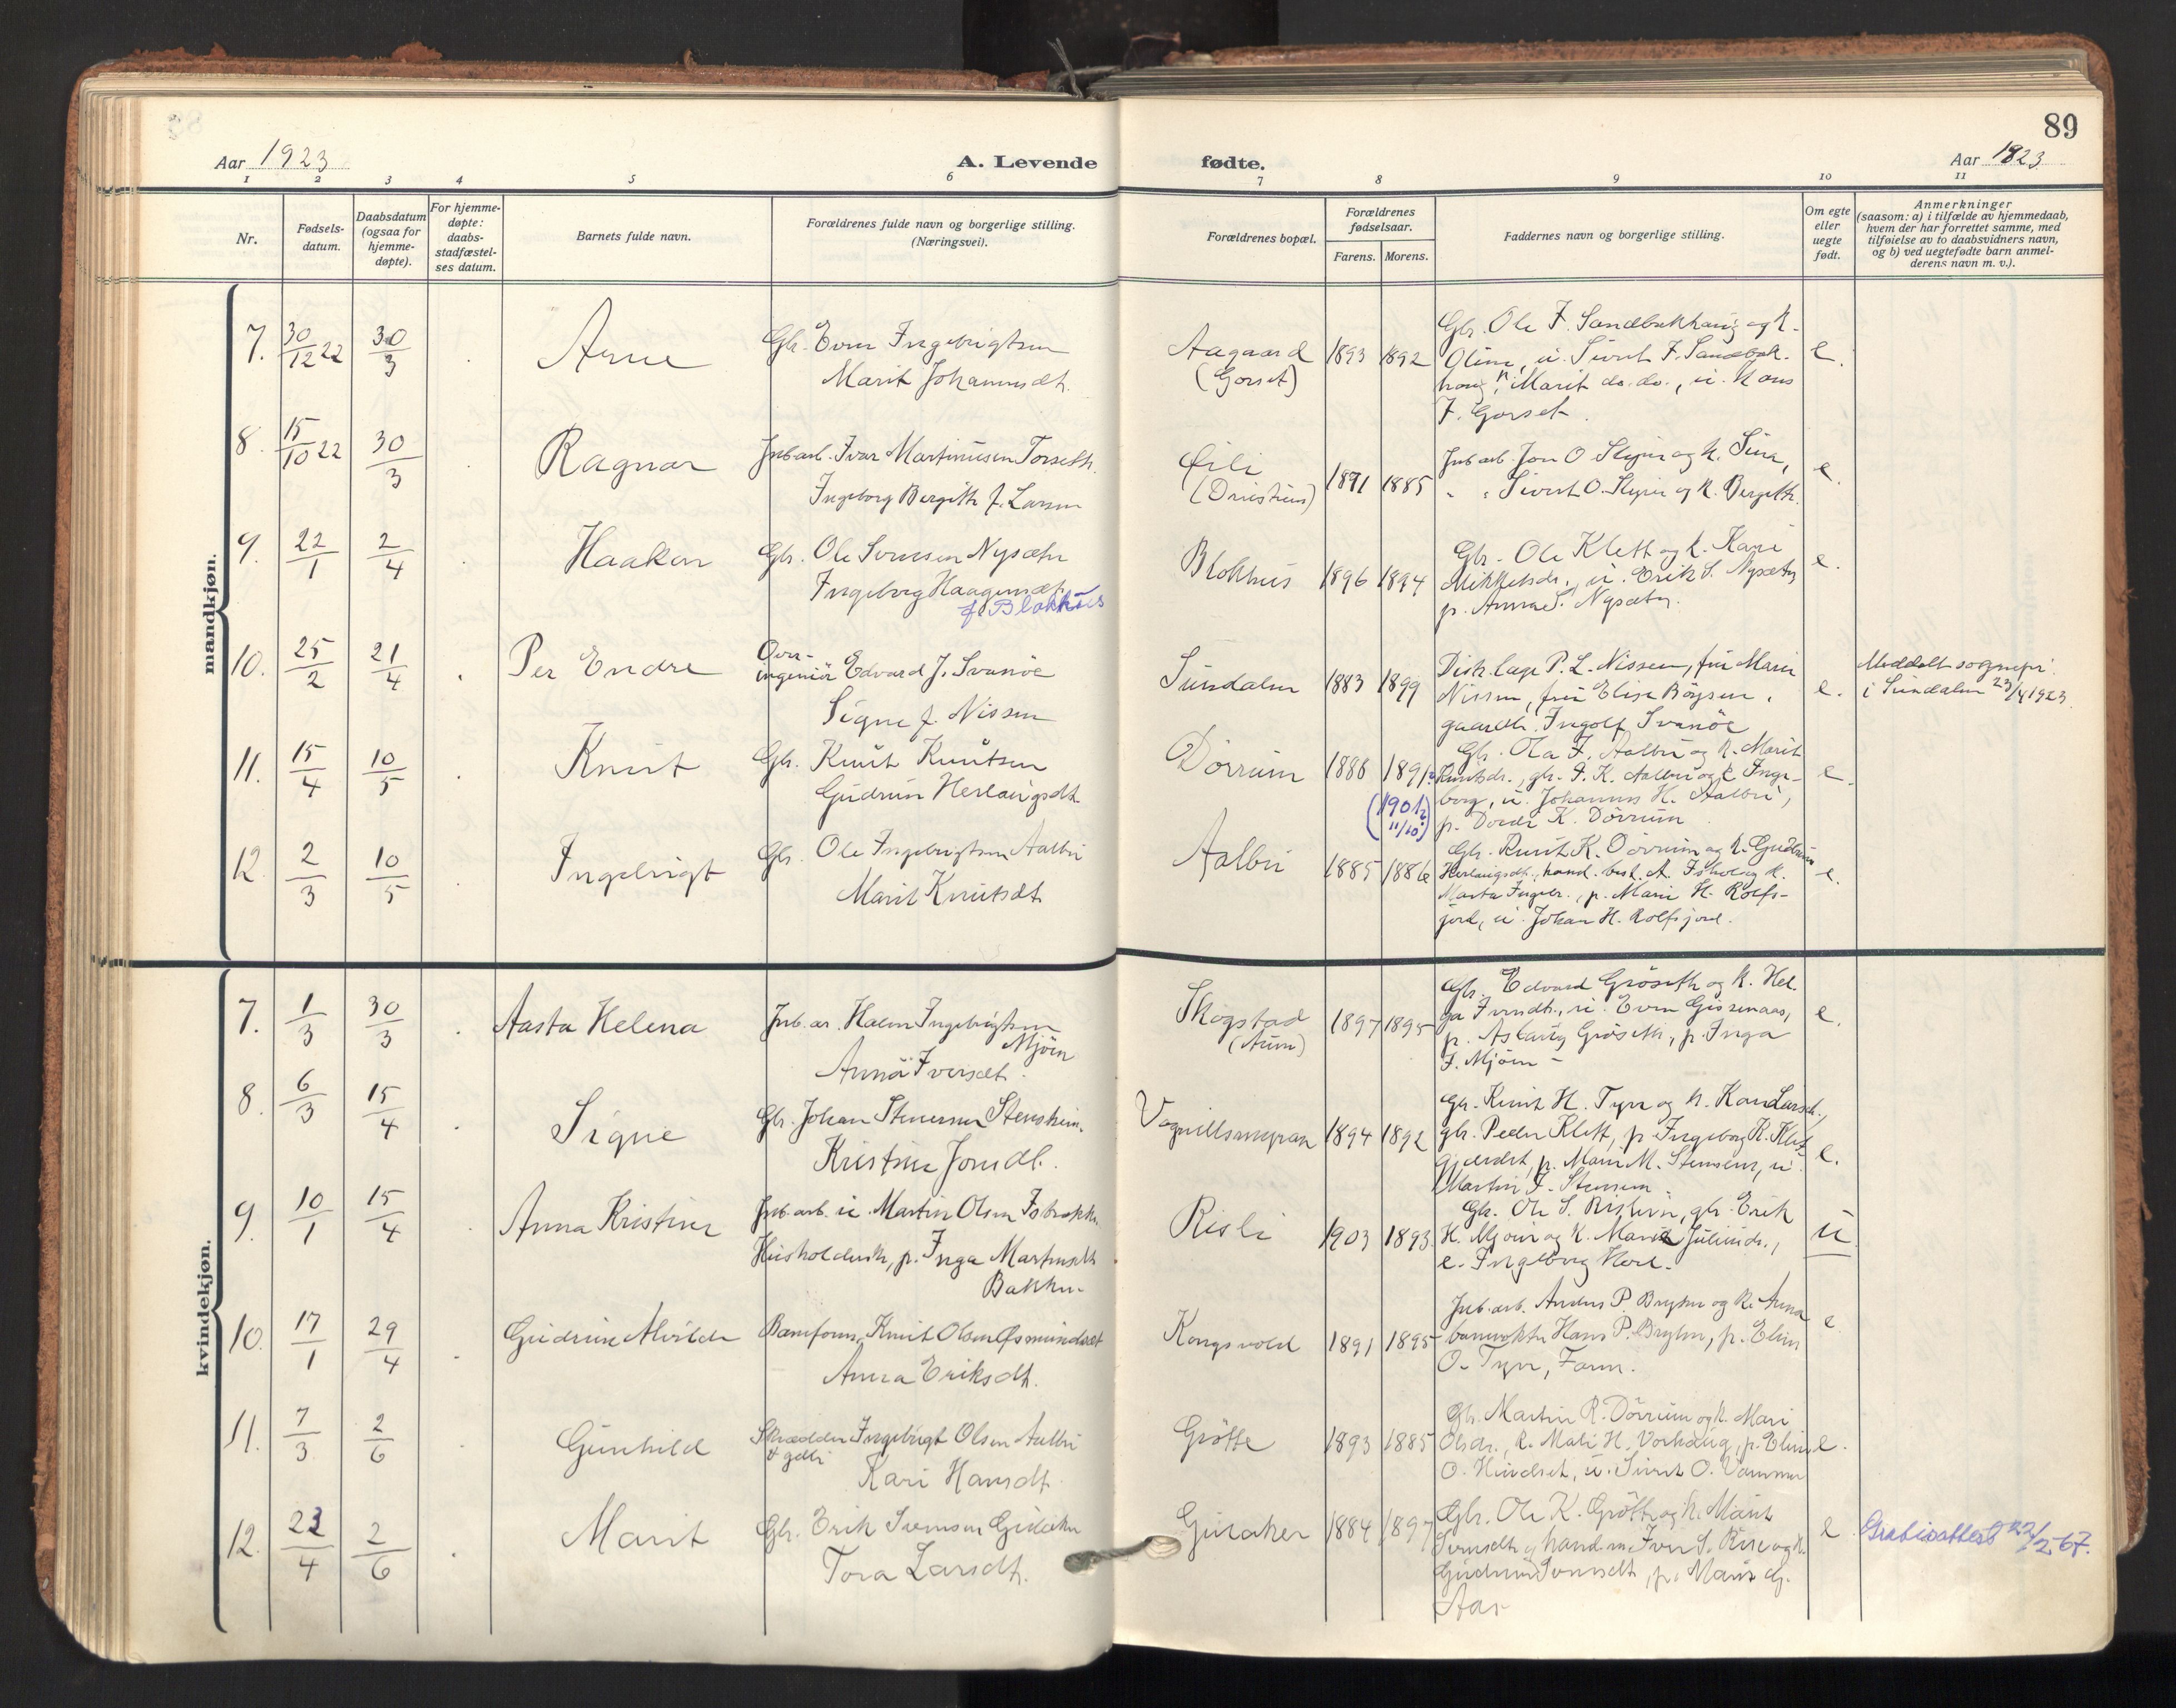 89
Aar 1923 A. Levende fødte. Aar 1923
1 2 3 4 5 6 7 8 9 10 11
Nr.
Fødsels-
datum.
Daabsdatum
(ogsaa for
hjemme-
døpte).
For hjemme-
døpte:
daabs-
stadfæstel-
ses datum.
Barnets fulde navn.
Forældrenes fulde navn og borgerlige stilling.
(Næringsvei).
Forældrenes bopæl.
Forældrenes
fødselsaar.
Farens. Morens.
Faddernes navn og borgerlige stilling.
Om egte
eller
uegte
født.
Anmerkninger
(saasom: a) i tilfælde av hjemmedaab,
hvem der har forrettet samme, med
tilføielse av to daabsvidners navn,
og b) ved uegtefødte barn anmel-
derens navn m. v.).
mandkjøn.
7. 30/12 22 30/3 Arne
Gbr. Even Ingebrigtsen
Marit Johannesdt.
Aagaard
(Gorset)
1893 1892
Gbr. Ole F. Sandbækhaug og k.
Oline, u. Sivert F. Sandbæk-
haug, p. Marit do. do., u. Hans
F. Gorset.
e.
8. 15/10 22 30/3 Ragnar
Jnb.arb. Ivar Martinusen Torseth.
Ingeborg Bergith f. Larsen
(Driestuen)
1891 1885
Jnb.arb. Jon O. Sliper og k. Sina,
" " Sivert O. Sliper og k. Bergith.
e.
9. 22/1 2/4 Haakon
Gbr. Ole Sivertsen Nysæter
Ingeborg Haagensdt.
f. Blokhus
Blokhus
1896 1894
Gbr. Ole Klett og k. Kari
Mikkelsdr., u. Erik S. Nysæter
p. Anna S. Nysæter.
e.
10. 25/2 21/4 Per Endre
Over-
ingeniør Edvard J. Svanøe
Signe f. Nissen
Sundalen
1883 1899
Distr.læge P. L. Nissen, fru Marie
Nissen, fru Elise Böysen.
gaardb. Ingolf Svanöe
e.
Meddelt sognepr.
i Sundalen 23/4 1923.
11. 15/4 10/5 Knut
Gbr. Knut Knutsen
Gudrun Herlaugsdt.
Dörrum
1888 1891?
(1901?
11/10)
Gbr. Ola I. Aalbu og k. Marit
Knutsdr., gbr. I. K. Aalbu og k. Inge-
borg, u. Johannes K. Aalbu,
p. Dordi K. Dörrum
e.
12. 2/3 10/5 Ingebrigt
Gbr. Ole Ingebrigtsen Aalbu
Marit Knutsdt.
Aalbu
1885 1886
Gbr. Knut K. Dörrum og k. Gudrun
Herlaugsdt., hand. best. A. og k.
Marta Ingebr., p. Marie H. Rolfs-
jord, u. Johan H. Rolfsjord.
e.
kvindekjøn.
7. 1/3 30/3 Aasta Helena
Jnb.ar. Halvor Ingebrigtsen
Mjöen
Anna Iversdt.
Skogstad
(Aune)
1897 1895
Gbr. Edvard Gröseth og k. Hel-
ga Iversdt., u. Even Gissenaas,
p. Aslaug Gröseth, p. Inga
I. Mjöen
e.
8. 6/3 15/4 Signe
Gbr. Johan Stenersen Stensheim.
Kristine Jonsdt.
Vognillsmyran
1894 1892
Gbr. Knut H. Tyer og k. Kari Larsdt.,
gbr. Peder Klett, p. Ingeborg K. Klett
p. Mari M. Stensem, u.
Martin I. Stensem.
e.
9. 10/1 15/4 Anna Kristine
Jnb.arb. u. Martin Olsen Isbrekken
Husholdersk, p. Inga Martinsdt.
Bakken.
Risli
1903 1893
Gbr. Ole S. Rishein, gbr. Erik
H. Mjöen og k. Marie Juliusdr.,
e. Ingeborg Hord.
u.
10. 17/1 29/4 Gudrun Alvilde
Baneform. Knut Olsen Gismundset
Anna Eriksdt.
Kongsvold
1891 1895
Jnb.arb. Anders P. Bryhn og k. Anna
banevokter Hans P. Bryhn, p. Elen
O. Tyer, Faren.
e
11. 7/3 2/6 Gunhild
Skrædder Ingebrigt Olsen Aalbu
Kari Hansdt.
Grötte
1893 1885
Gbr. Martin R. Dörrum og k. Mari
Olsdr., k. Mali H. Vorhaug, p. Elen
O. Hindset, u. Sivert O. Vammer
e.
12. 23/4 2/6 Marit
Gbr. Erik Svensen Gulaker
Tora Larsdt.
Gulaker
1884 1897
Gbr. Ole K. Grötte og k. Marit
Svensdt. g. hand.m. Iver S. Rise og k.
Gudrun Svensdt., p. Marit G.
Aas
e
22/2-67.